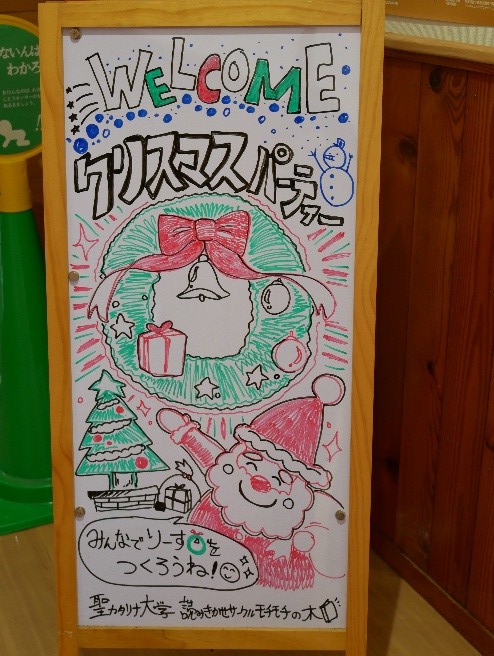 WELCOME
クリスマスパーティー
みんなでりーすを
つくろうね!
聖カタリナ大学 読みきかせサークルモチモチの木
ないんは
わかろ